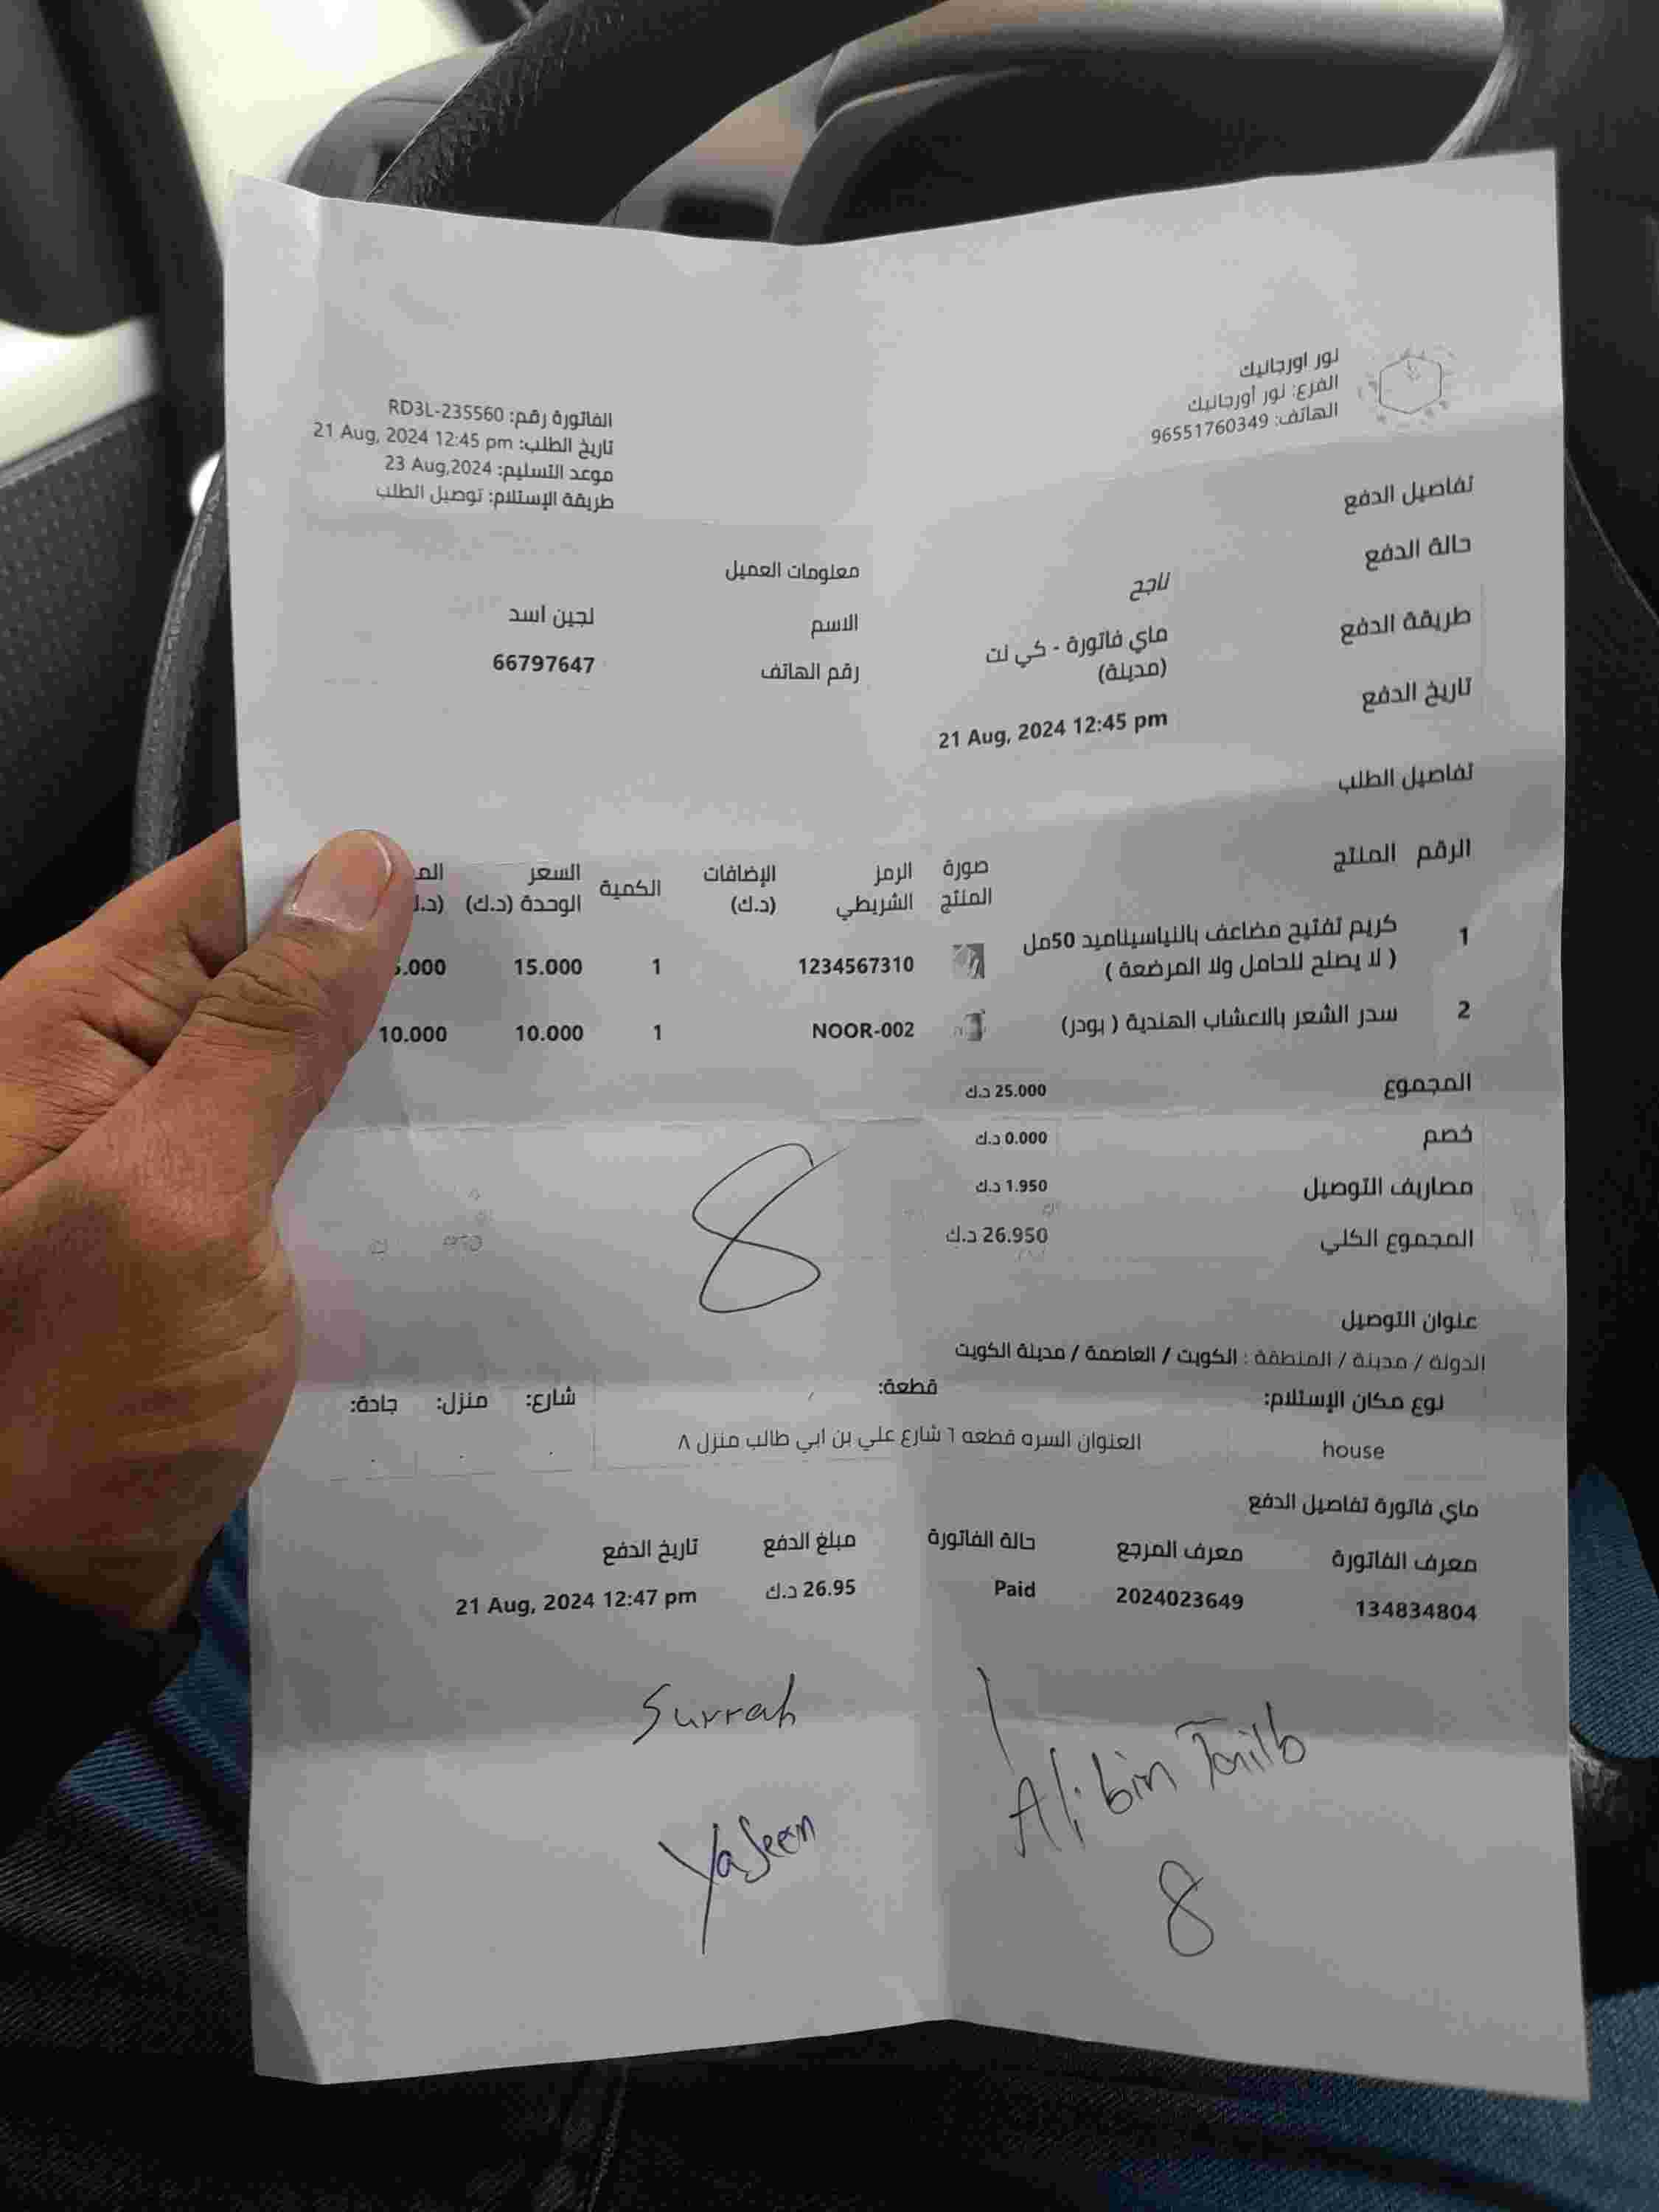 نور اورجانيك
الفرع: نور أورجانيك
الهاتف: 96551760349
الفاتورة رقم: RD3L-235560
تاريخ الطلب: 21 Aug, 2024 12:45 pm
موعد التسليم: 23 Aug,2024
طريقة الإستلام: توصيل الطلب
تفاصيل الدفع
حالة الدفع ناجح
طريقة الدفع ماي فاتورة - كي نت
(مدينة)
تاريخ الدفع 21 Aug, 2024 12:45 pm
معلومات العميل
الاسم لجين اسد
رقم الهاتف 66797647
تفاصيل الطلب
الرقم المنتج صورة المنتج الرمز الشريطي الإضافات (د.ك) الكمية السعر الوحدة (د.ك)
1 كريم تفتيح مضاعف بالنياسيناميد 50مل 1234567310 1 15.000 5.000
( لا يصلح للحامل ولا المرضعة )
2 سدر الشعر بالاعشاب الهندية ( بودر) NOOR-002 1 10.000 10.000
المجموع 25.000 د.ك
خصم 0.000 د.ك
مصاريف التوصيل 1.950 د.ك
المجموع الكلي 26.950 د.ك
8
عنوان التوصيل
الدولة / مدينة / المنطقة : الكويت / العاصمة / مدينة الكويت
نوع مكان الإستلام: قطعة: شارع: منزل: جادة:
house العنوان السره قطعه ٦ شارع علي بن ابي طالب منزل ٨
ماي فاتورة تفاصيل الدفع
معرف الفاتورة معرف المرجع حالة الفاتورة مبلغ الدفع تاريخ الدفع
134834804 2024023649 Paid 26.95 د.ك 21 Aug, 2024 12:47 pm
Surrah
Ali bin Tailb
Yaseen
8